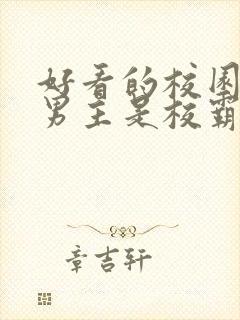 好看的校园
男主是校霸
章吉轩